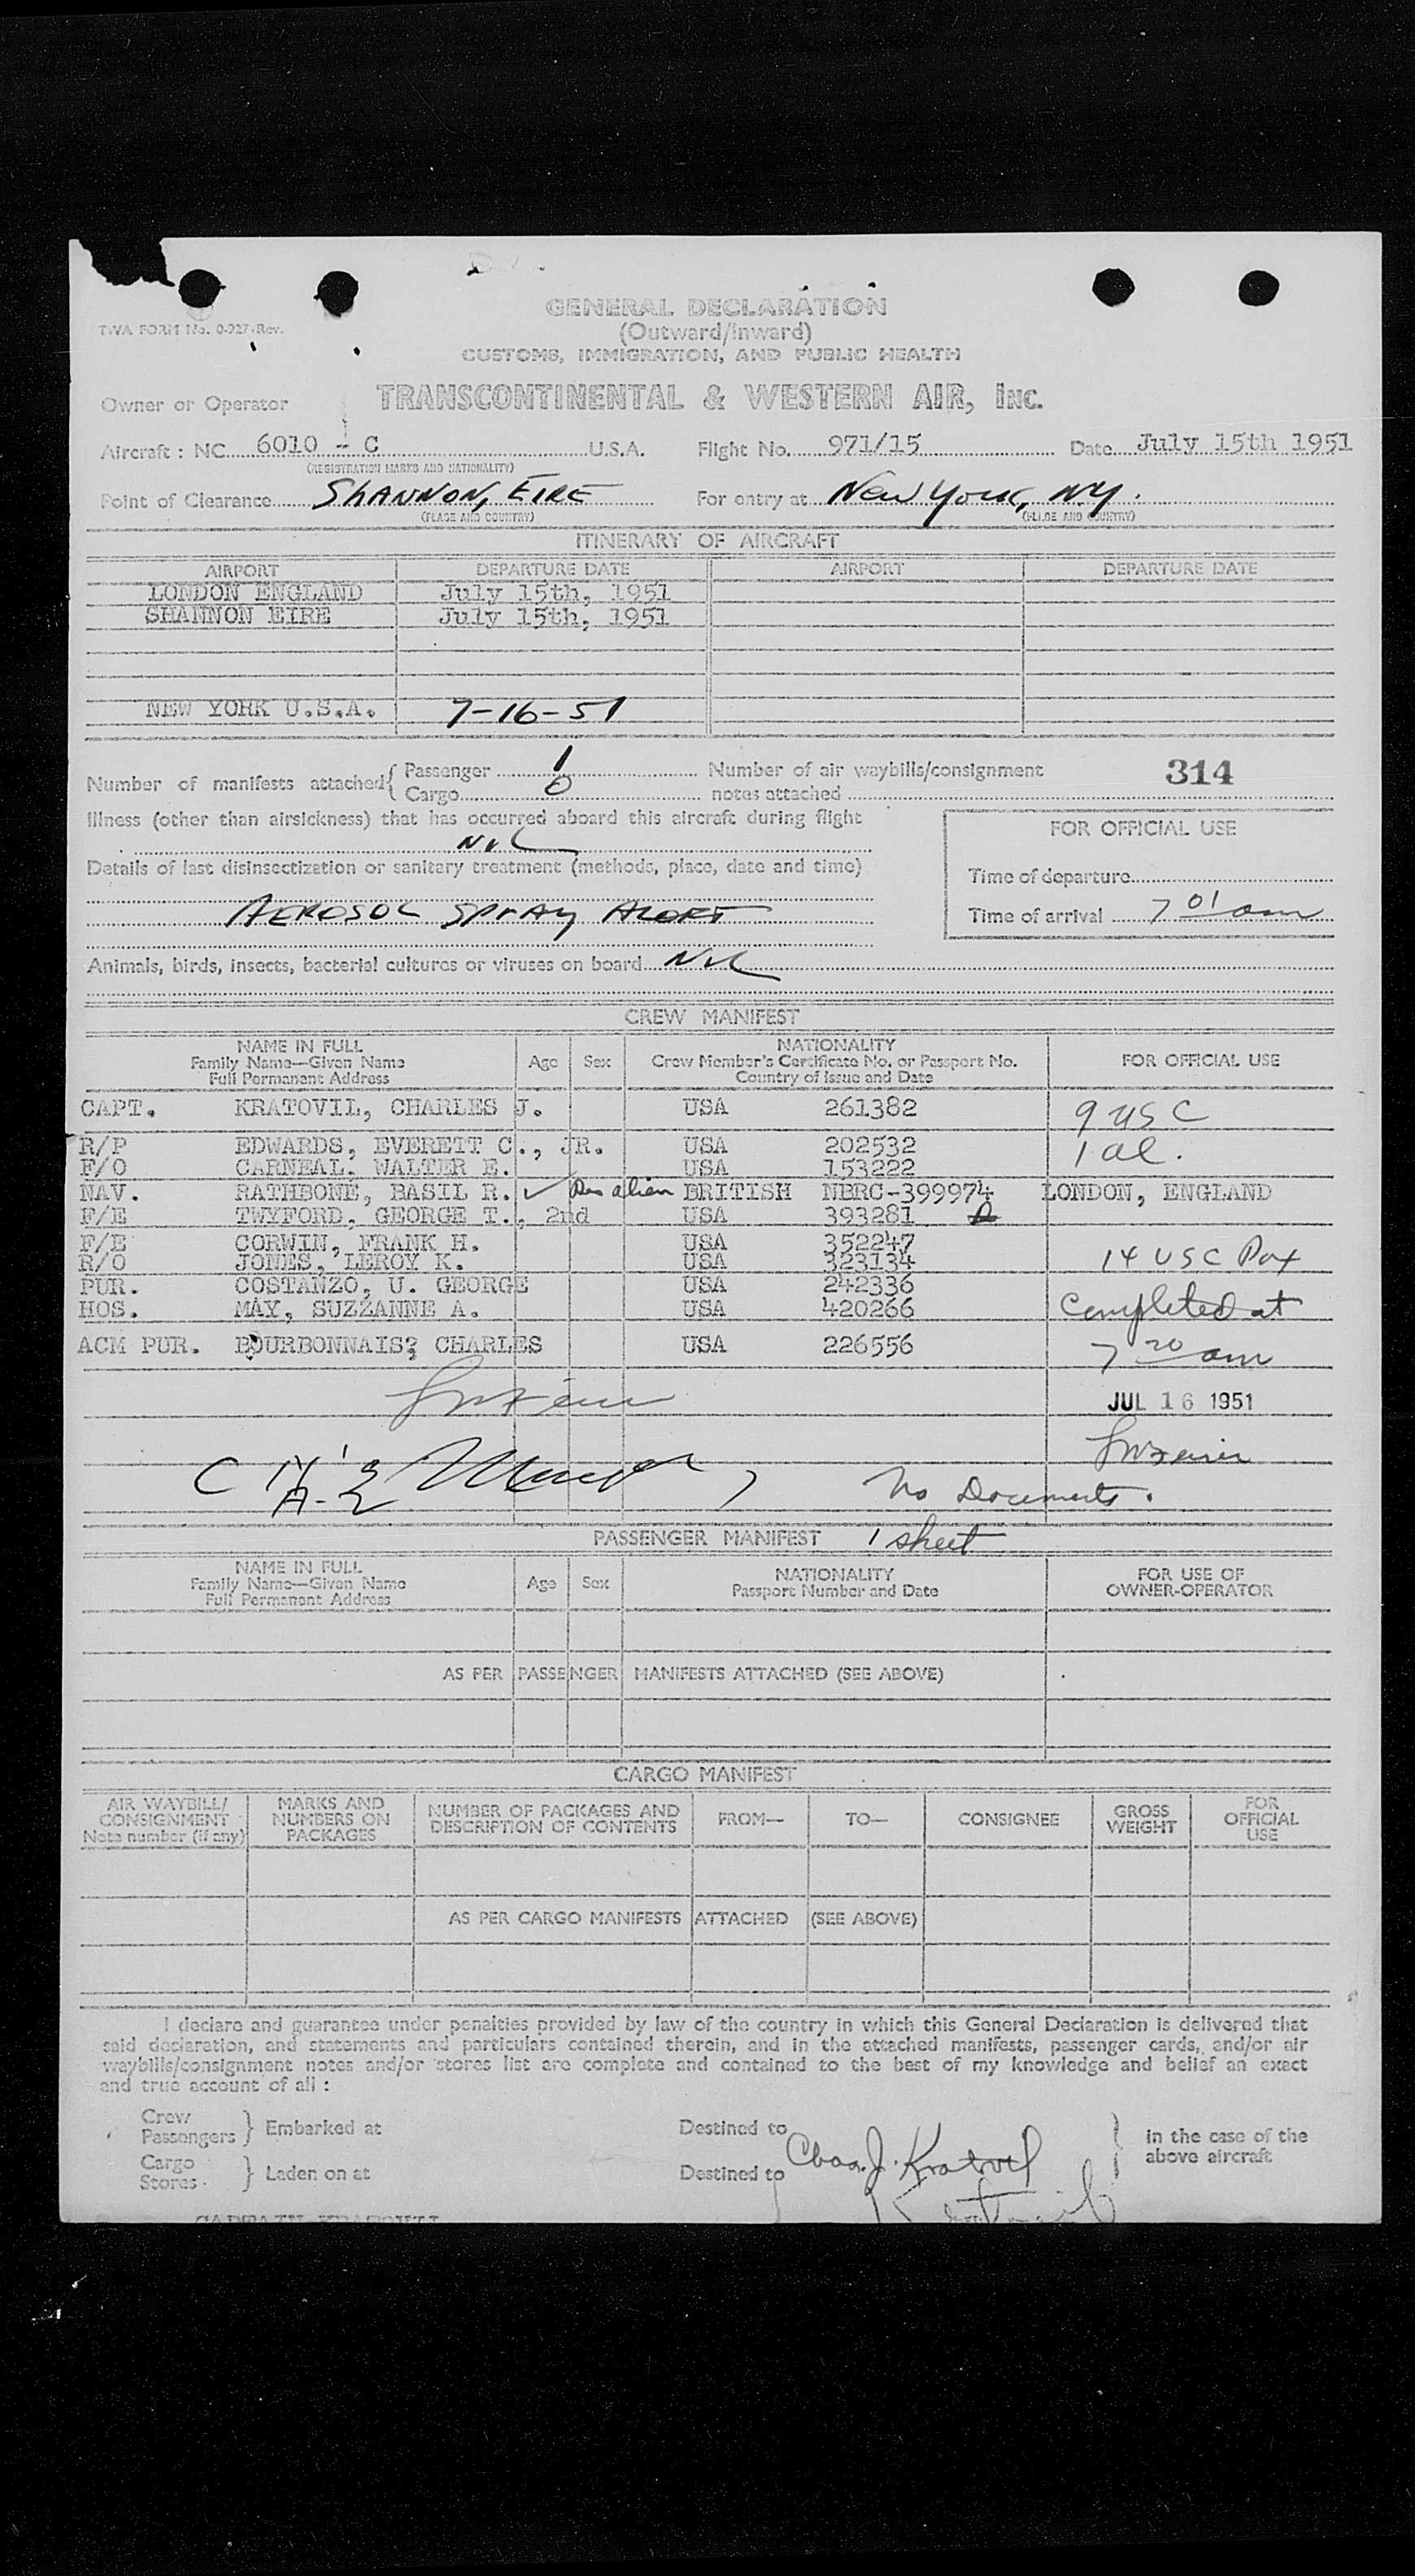 GENERAL DECLARATION
TWA FORM No. 0-927-Rev. (Outward/Inward)
CUSTOMS, IMMIGRATION, AND PUBLIC HEALTH
Owner or Operator TRANSCONTINENTAL & WESTERN AIR, INC.
Aircraft : NC 6010 - C U.S.A. Flight No. 971/15 Date July 15th 1951
(REGISTRATION MARKS AND NATIONALITY)
Point of Clearance SHANNON, EIRE For entry at New York, NY.
(PLACE AND COUNTRY) (PLACE AND COUNTRY)
ITINERARY OF AIRCRAFT
AIRPORT DEPARTURE DATE AIRPORT DEPARTURE DATE
LONDON ENGLAND July 15th, 1951
SHANNON EIRE July 15th, 1951
NEW YORK U.S.A. 7-16-51
Number of manifests attached { Passenger 1 Number of air waybills/consignment 314
Cargo 0 notes attached
Illness (other than airsickness) that has occurred aboard this aircraft during flight
Nil
FOR OFFICIAL USE
Details of last disinsectization or sanitary treatment (methods, place, date and time)
Time of departure
AEROSOL SPRAY
Time of arrival 7 01 am
Animals, birds, insects, bacterial cultures or viruses on board Nil
CREW MANIFEST
NAME IN FULL
Family Name—Given Name
Full Permanent Address
Age Sex
NATIONALITY
Crew Member's Certificate No. or Passport No.
Country of Issue and Date
FOR OFFICIAL USE
CAPT. KRATOVIL, CHARLES J. USA 261382 9 USC
R/P EDWARDS, EVERETT C., JR. USA 202532 1 al.
F/O CARNEAL, WALTER E. USA 153222
NAV. RATHBONE, BASIL R. ✓ Res alien BRITISH NBRC-399974 LONDON, ENGLAND
F/E TWYFORD, GEORGE T., 2nd USA 393281
F/E CORWIN, FRANK H. USA 352247
R/O JONES, LEROY K. USA 323134 14 USC Pax
PUR. COSTANZO, U. GEORGE USA 242336
HOS. MAY, SUZZANNE A. USA 420266 Completed at
ACM PUR. BOURBONNAIS? CHARLES USA 226556 7 20 am
JUL 16 1951
No Documents.
PASSENGER MANIFEST 1 sheet
NAME IN FULL
Family Name—Given Name
Full Permanent Address
Age Sex
NATIONALITY
Passport Number and Date
FOR USE OF
OWNER-OPERATOR
AS PER PASSENGER MANIFESTS ATTACHED (SEE ABOVE)
CARGO MANIFEST
AIR WAYBILL/
CONSIGNMENT
Note number (if any)
MARKS AND
NUMBERS ON
PACKAGES
NUMBER OF PACKAGES AND
DESCRIPTION OF CONTENTS
FROM— TO— CONSIGNEE
GROSS
WEIGHT
FOR
OFFICIAL
USE
AS PER CARGO MANIFESTS ATTACHED (SEE ABOVE)
I declare and guarantee under penalties provided by law of the country in which this General Declaration is delivered that
said declaration, and statements and particulars contained therein, and in the attached manifests, passenger cards, and/or air
waybills/consignment notes and/or stores list are complete and contained to the best of my knowledge and belief an exact
and true account of all :
Crew
Passengers } Embarked at Destined to } In the case of the
above aircraft
Cargo
Stores } Laden on at Destined to Chas. J. Kratovil
CAPTAIN KRATOVIL